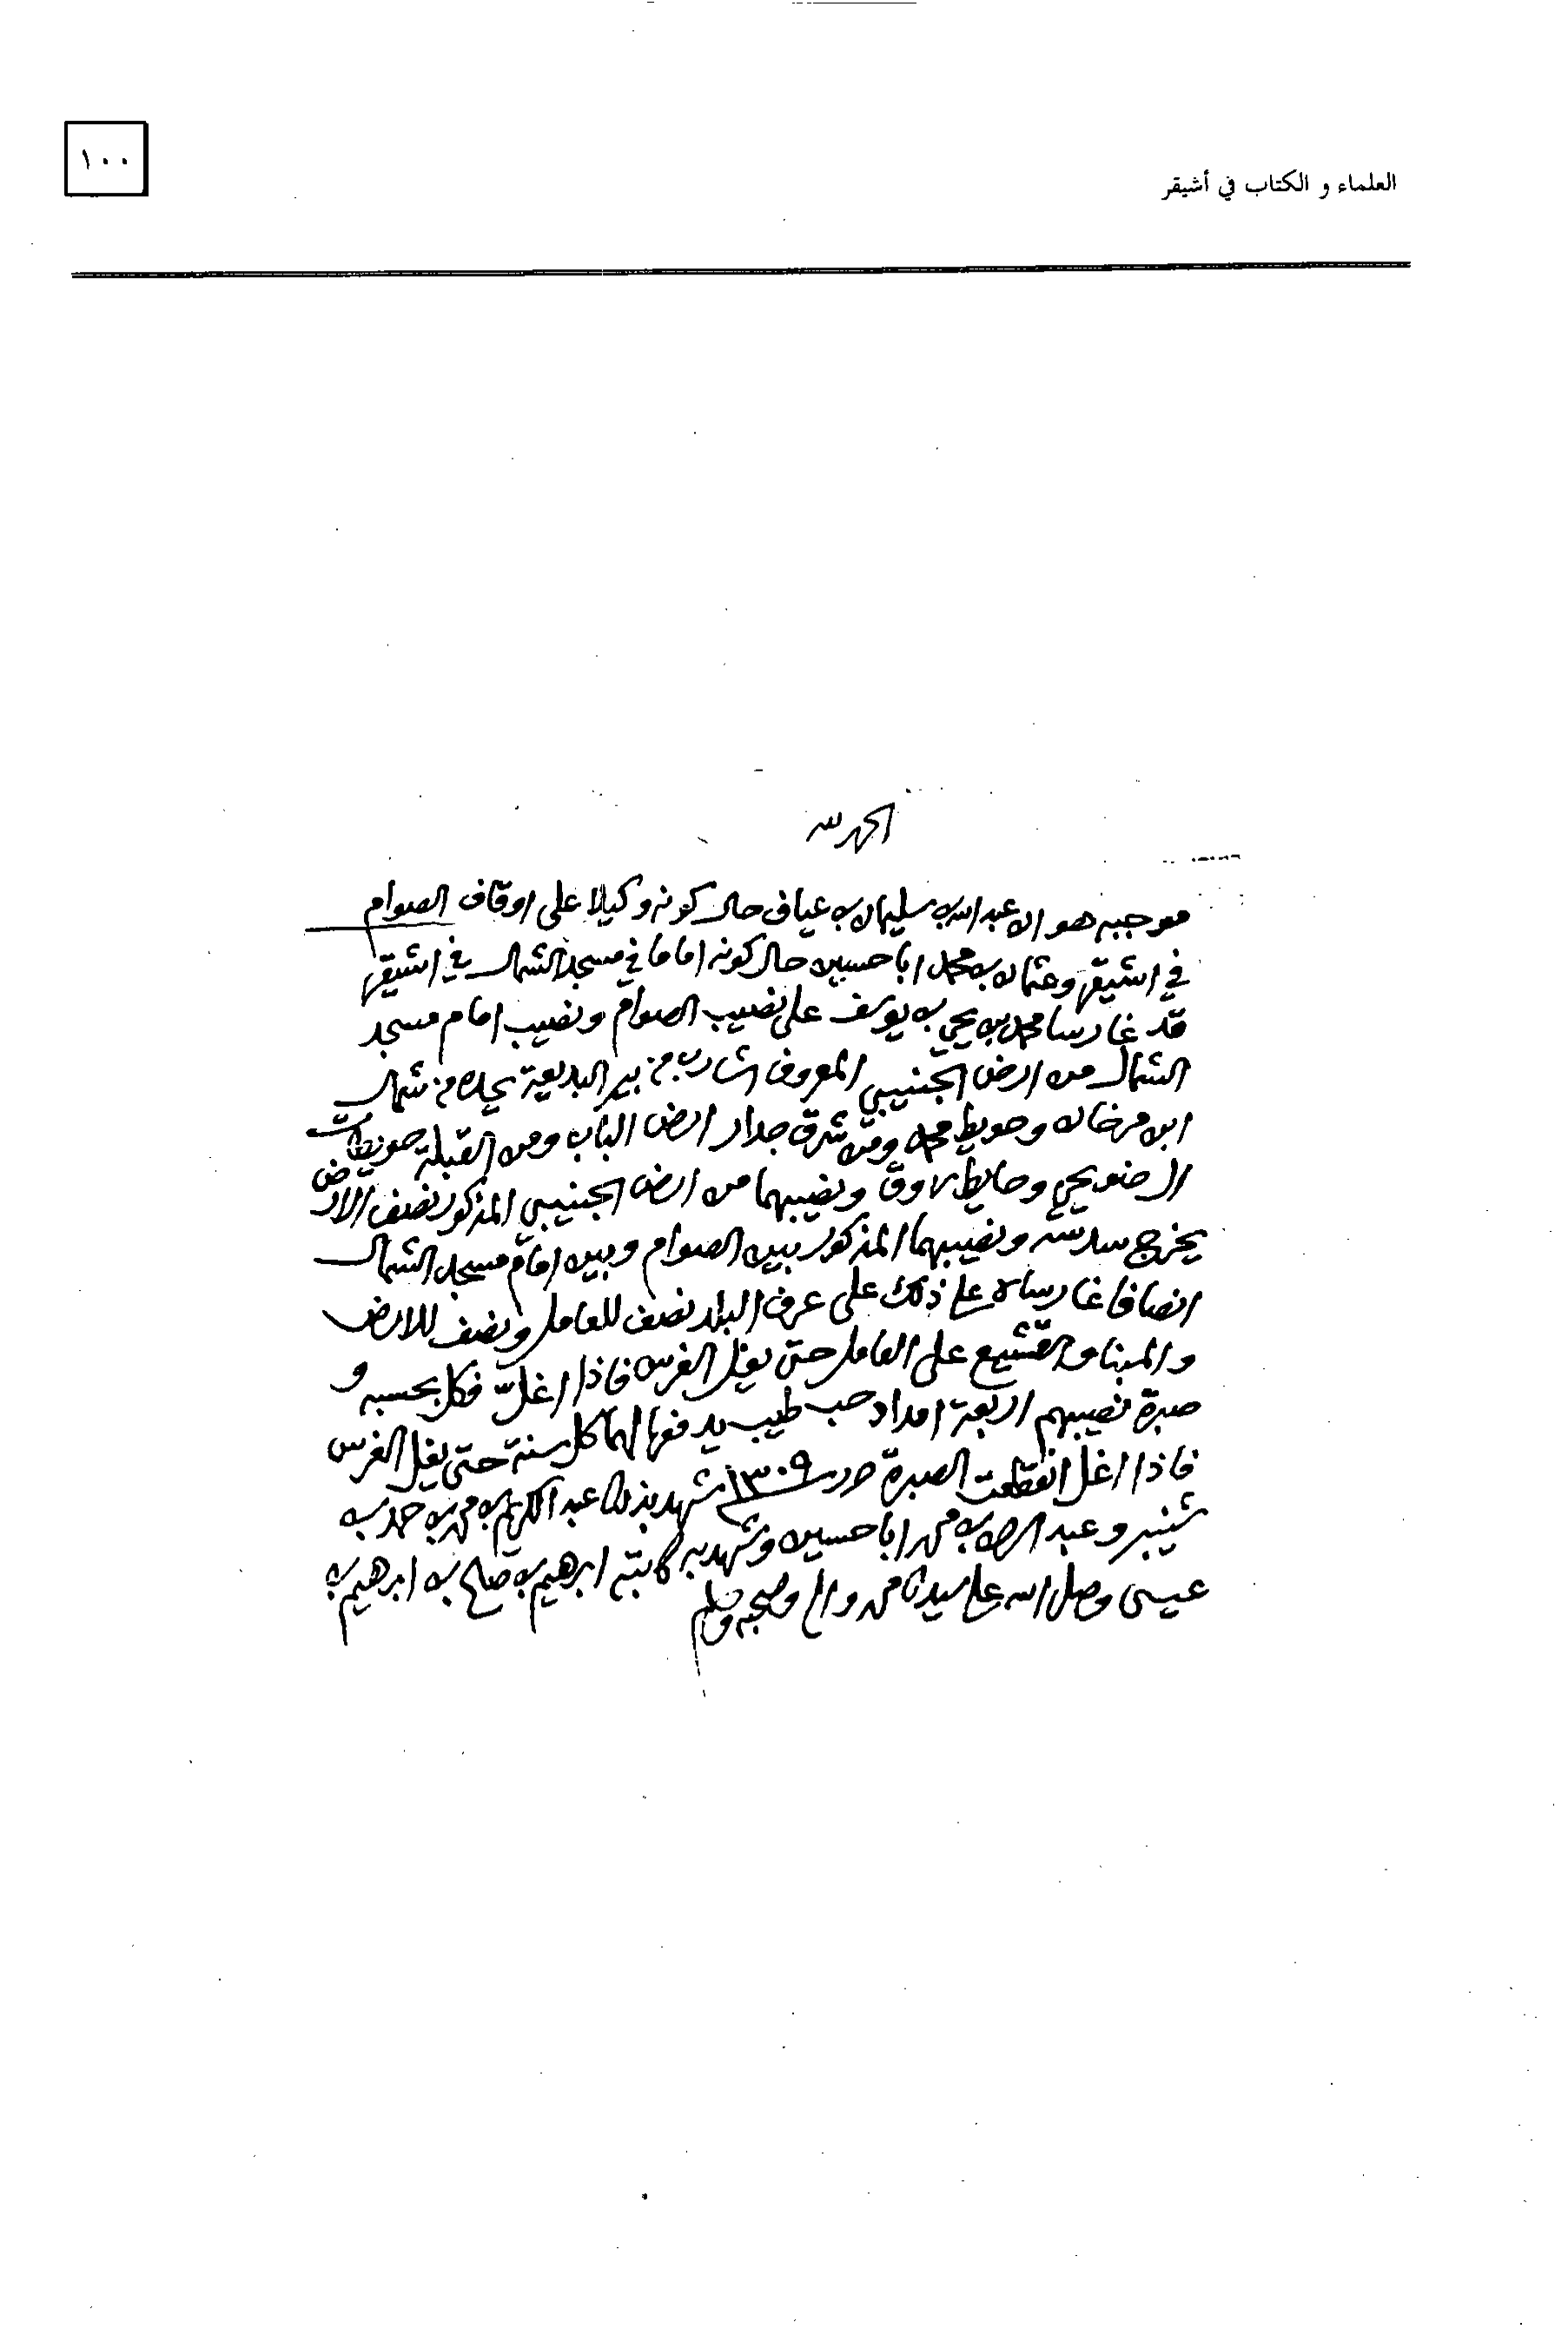 العلماء و الكتاب في أشيقر
١٠٠
الحمد لله
موجبه هو ان عبد الله بن سليمان بن عياف حال كونه وكيلا على اوقاف الصوام
في اشيقر وعثمان بن محمد ابا حسين حال كونه اماما في مسجد الشمال في اشيقر
قد غارسا محمد بن يحيى بن يوسف على نصيب الصوام ونصيب امام مسجد
الشمال من ارض الجنيبي المعروف الشارب من بير البديعة يحده من شمال
ابن مرخان وحويط محمد ومن شرق جدار ارض الباب ومن القبلة حويطات
ال يحيى وحايط ونصيبهما من ارض الجنيبي المذكور نصف الارض
يخرج سدسه ونصيبهما المذكور بين الصوام وبين امام مسجد الشمال
انصافا غارساه على ذلك على عرف البلد نصف للعامل ونصف للارض
والمبنا والتشيع على العامل حتى يغل الغرس فاذا اغل فكل بحسبه و
صبرة نصيبهم اربعة امداد حب طيب يدفعها لهما كل سنة حتى يغل الغرس
فاذا اغل انقطعت الصبرة حرر سنة ١٣٠٩ شهد بذلك عبد الكريم بن محمد بن حمد بن
شنيبر وعبد الرحمن بن محمد ابا حسين وشهد به كاتبه ابرهيم بن صالح بن ابرهيم بن
عيسى وصلى الله على سيدنا محمد واله وصحبه وسلم